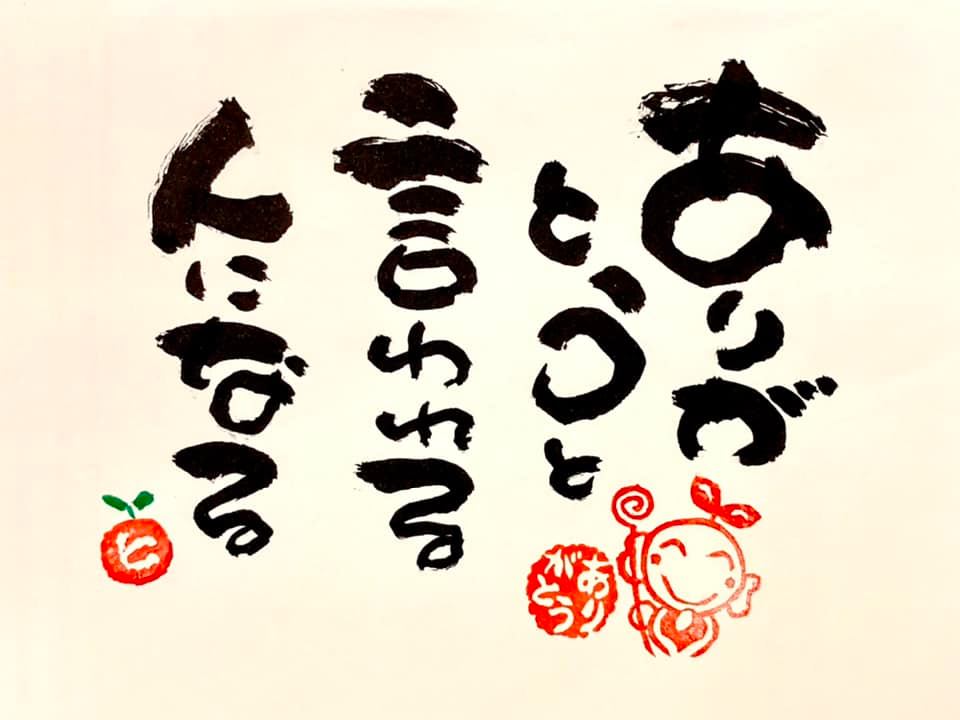 ありが
とうと
言われる
人になる
ありがとう